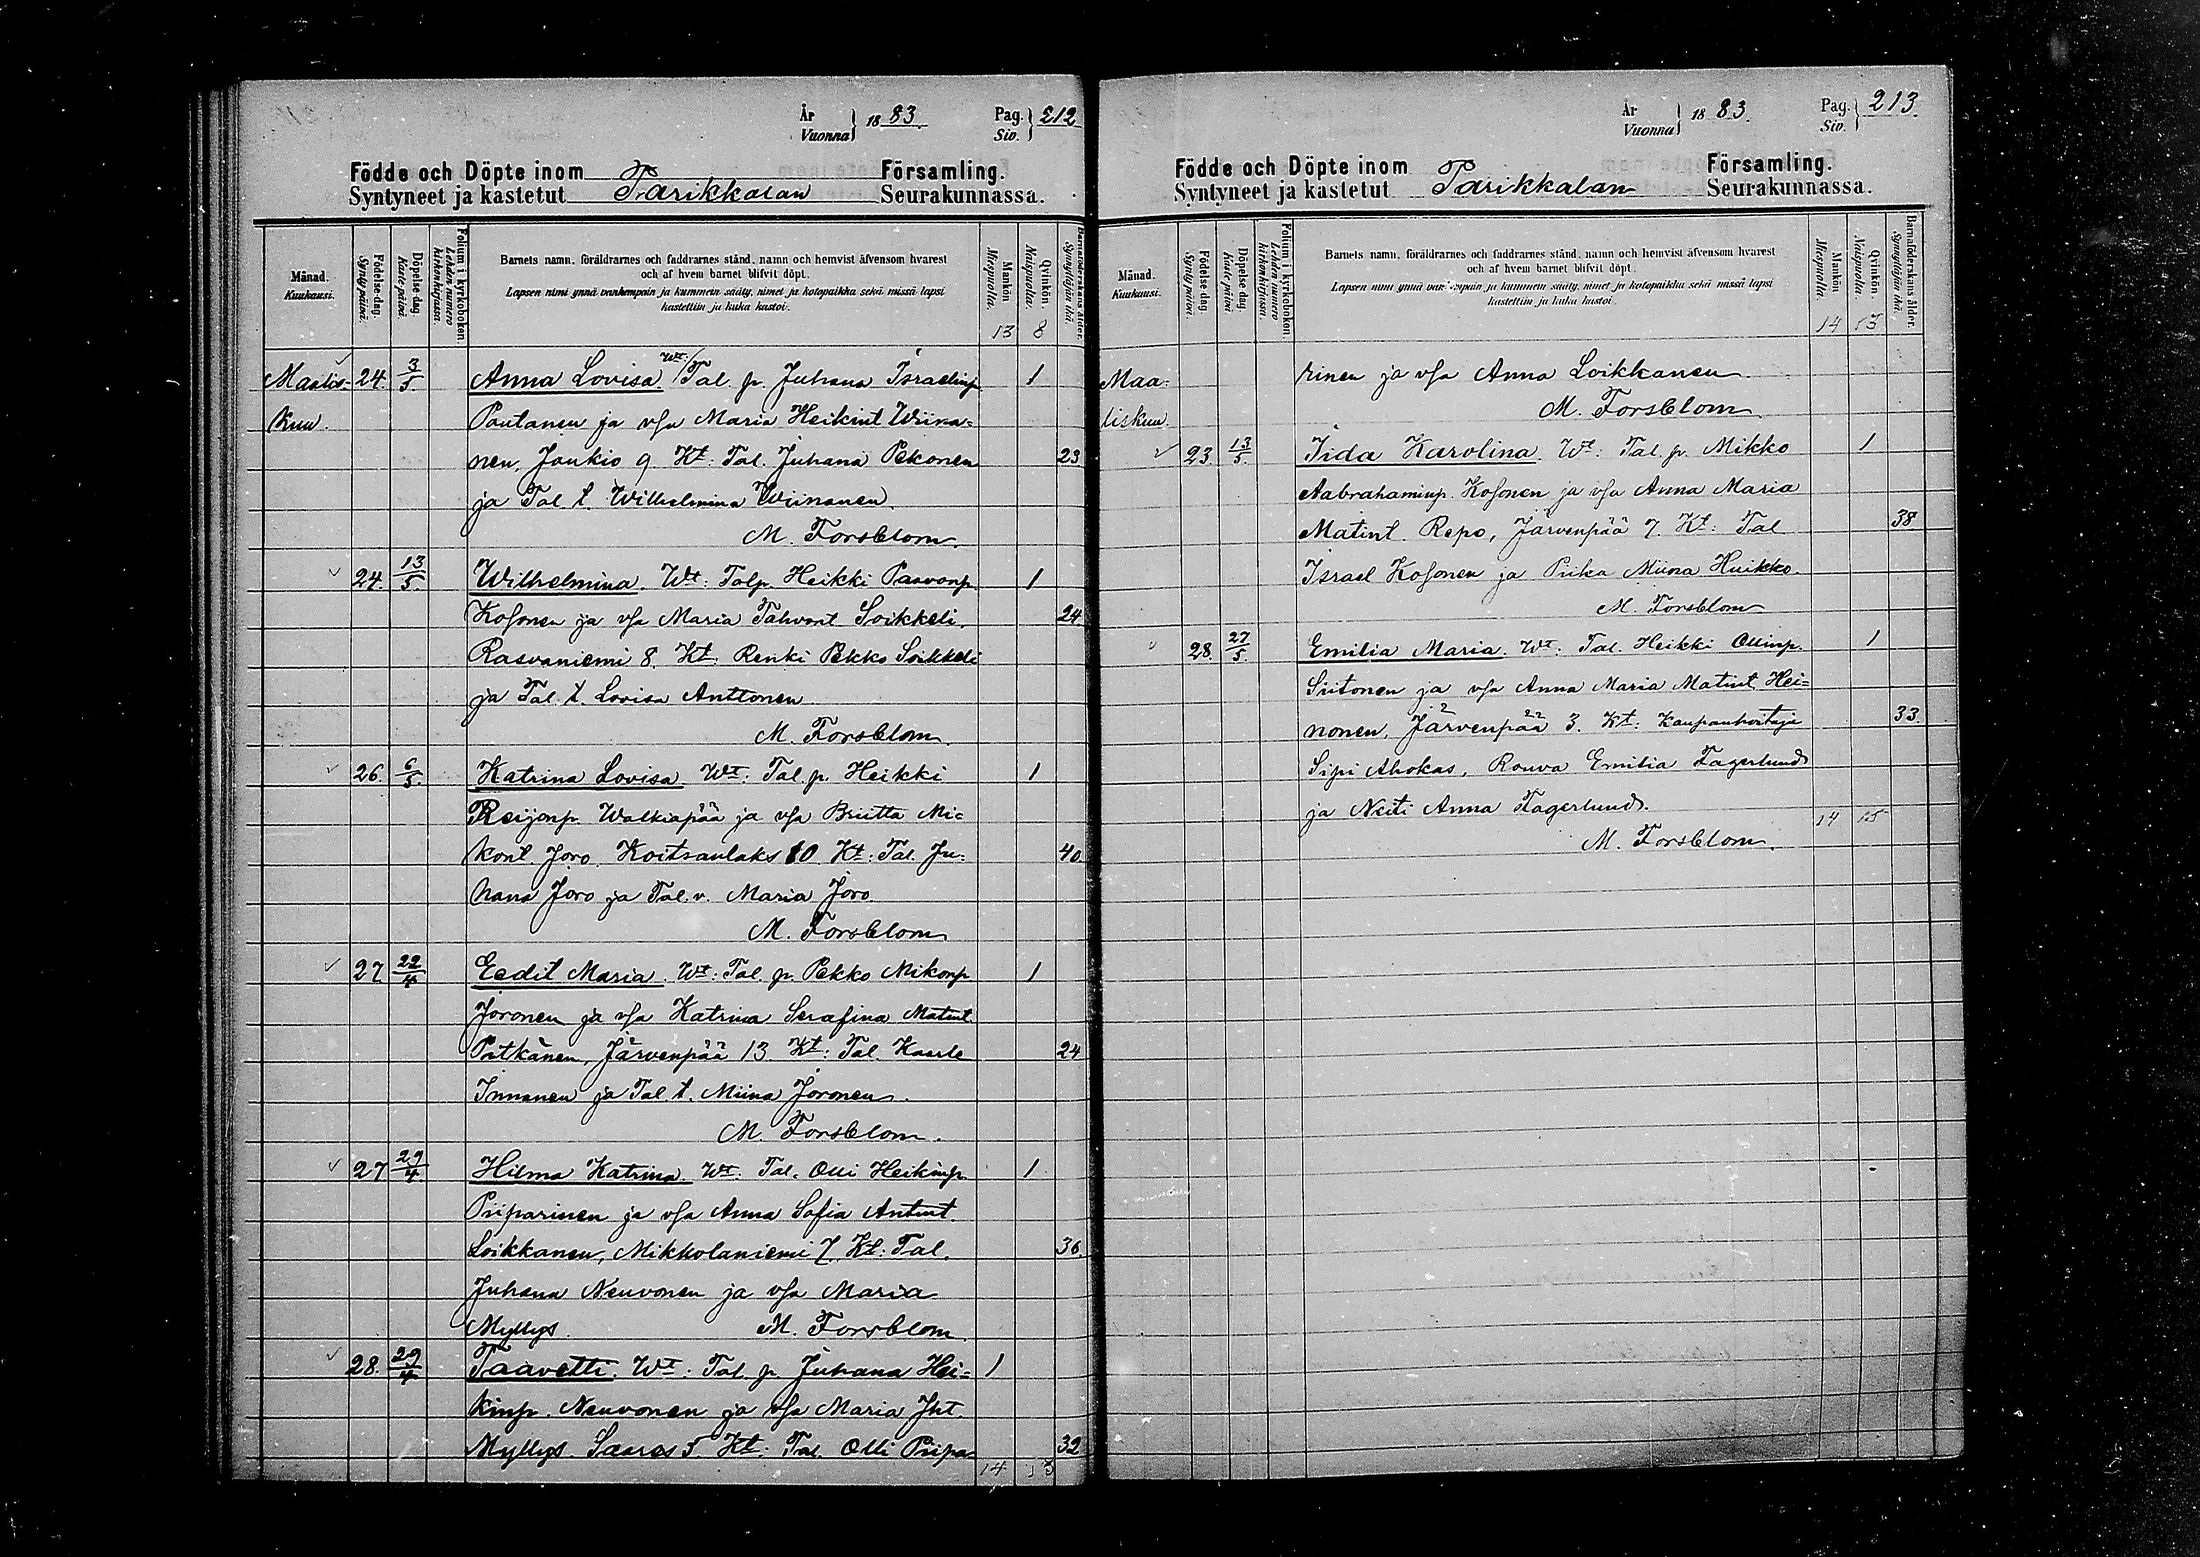 År
Vuonna
1883.
Pag.
Siv.
212
Födde och Döpte inom
Syntyneet ja kastetut
Parikkalan
Församling.
Seurakunnassa.
Månad.
Kuukausi.
Födelse-dag.
Syntypäivä.
Döpelse-dag.
Kaste-päivä.
Folium i kyrkoboken.
Lehden numero
kirkonkirjassa.
Barnets namn, föräldrarnes och faddrarnes stånd, namn och hemvist äfvensom hvarest
och af hvem barnet blifvit döpt.
Lapsen nimi ynnä vanhempain ja kummein sääty, nimet ja kotopaikka sekä missä lapsi
kastettiin ja kuka kastoi.
Mankön
Miespuolta.
13
Qvinkön.
Naispuolta.
8
Barnaföderskans ålder.
Synnyttäjän ikä.
Maalis- 24. 3/5 Anna Lovisa Wt: Tal. p. Juhana Israelinp 1
kuu. Pautanen ja vsa Maria Heikint Wiina-
nen, Joukio 9 Kt: Tal. Juhana Pekonen 23
ja Tal. t. Wilhelmina Wiinanen.
M. Forsblom.
24. 13/5. Wilhelmina. Wt: Talp Heikki Paavonp 1
Kosonen ja vsa Maria Tahvont Soikkeli. 24
Rasvaniemi 8. Kt. Renki Pekko Soikkeli
ja Tal. t. Lovisa Anttonen
M. Forsblom.
26. 6/5. Katrina Lovisa Wt: Tal. p. Heikki 1
Reijonp. Walkiapää ja vsa Briitta Mi-
kont Joro. Koitsanlaks 10 Kt: Tal. Ju- 40.
hana Joro ja Tal. v. Maria Joro.
M. Forsblom
27 22/4 Eedit Maria. Wt: Tal. p. Pekko Mikonp 1
Joronen ja vsa Katrina Serafina Matint.
Pitkänen, Järvenpää 13. Kt: Tal. Kaarle 24
Innanen ja Tal. t. Miina Joronen.
M. Forsblom.
27 29/4. Hilma Katrina. Wt: Tal. Olli Heikinp. 1
Piiparinen ja vsa Anna Sofia Antint.
Loikkanen, Mikkolaniemi 7. Kt: Tal. 36.
Juhana Neuvonen ja vsa Maria
Myllys. M. Forsblom.
28. 29/4 Taavetti. Wt: Tal. p. Juhana Hei- 1
kinp. Neuvonen ja vsa Maria Jht.
Myllys. Saares 5. Kt: Tal. Olli Piipa- 32
14
År
Vuonna
1883.
Pag.
Siv.
213.
Födde och Döpte inom
Syntyneet ja kastetut
Parikkalan
Församling.
Seurakunnassa.
Månad.
Kuukausi.
Födelse-dag.
Syntypäivä.
Döpelse-dag.
Kaste-päivä
Folium i kyrkoboken.
Lehden numero
kirkonkirjassa.
Barnets namn, föräldrarnes och faddrarnes stånd, namn och hemvist äfvensom hvarest
och af hvem barnet blifvit döpt.
Lapsen nimi ynnä vanhempain ja kummein sääty, nimet ja kotopaikka sekä missä lapsi
kastettiin ja kuka kastoi.
Mankön
Miespuolta.
14
Qvinkön.
Naispuolta.
13
Barnaföderskans ålder.
Synnyttäjän ikä.
Maa- rinen ja vsa Anna Loikkanen.
liskuu. M. Forsblom
23. 13/5. Iida Karolina. Wt: Tal. p. Mikko 1
Aabrahaminp. Kosonen ja vsa Anna Maria
Matint. Repo, Järvenpää 7. Kt: Tal 38.
Israel Kosonen ja Piika Miina Huikko.
M. Forsblom
28. 27/5. Emilia Maria. Wt: Tal. Heikki Ollinp. 1
Siitonen ja vsa Anna Maria Matint. Hei-
nonen, Järvenpää 3. Kt: Kaupanhoitaja 33.
Sipi Ahokas, Rouva Emilia Fagerlund
ja Neiti Anna Fagerlund.
14 15
M. Forsblom.